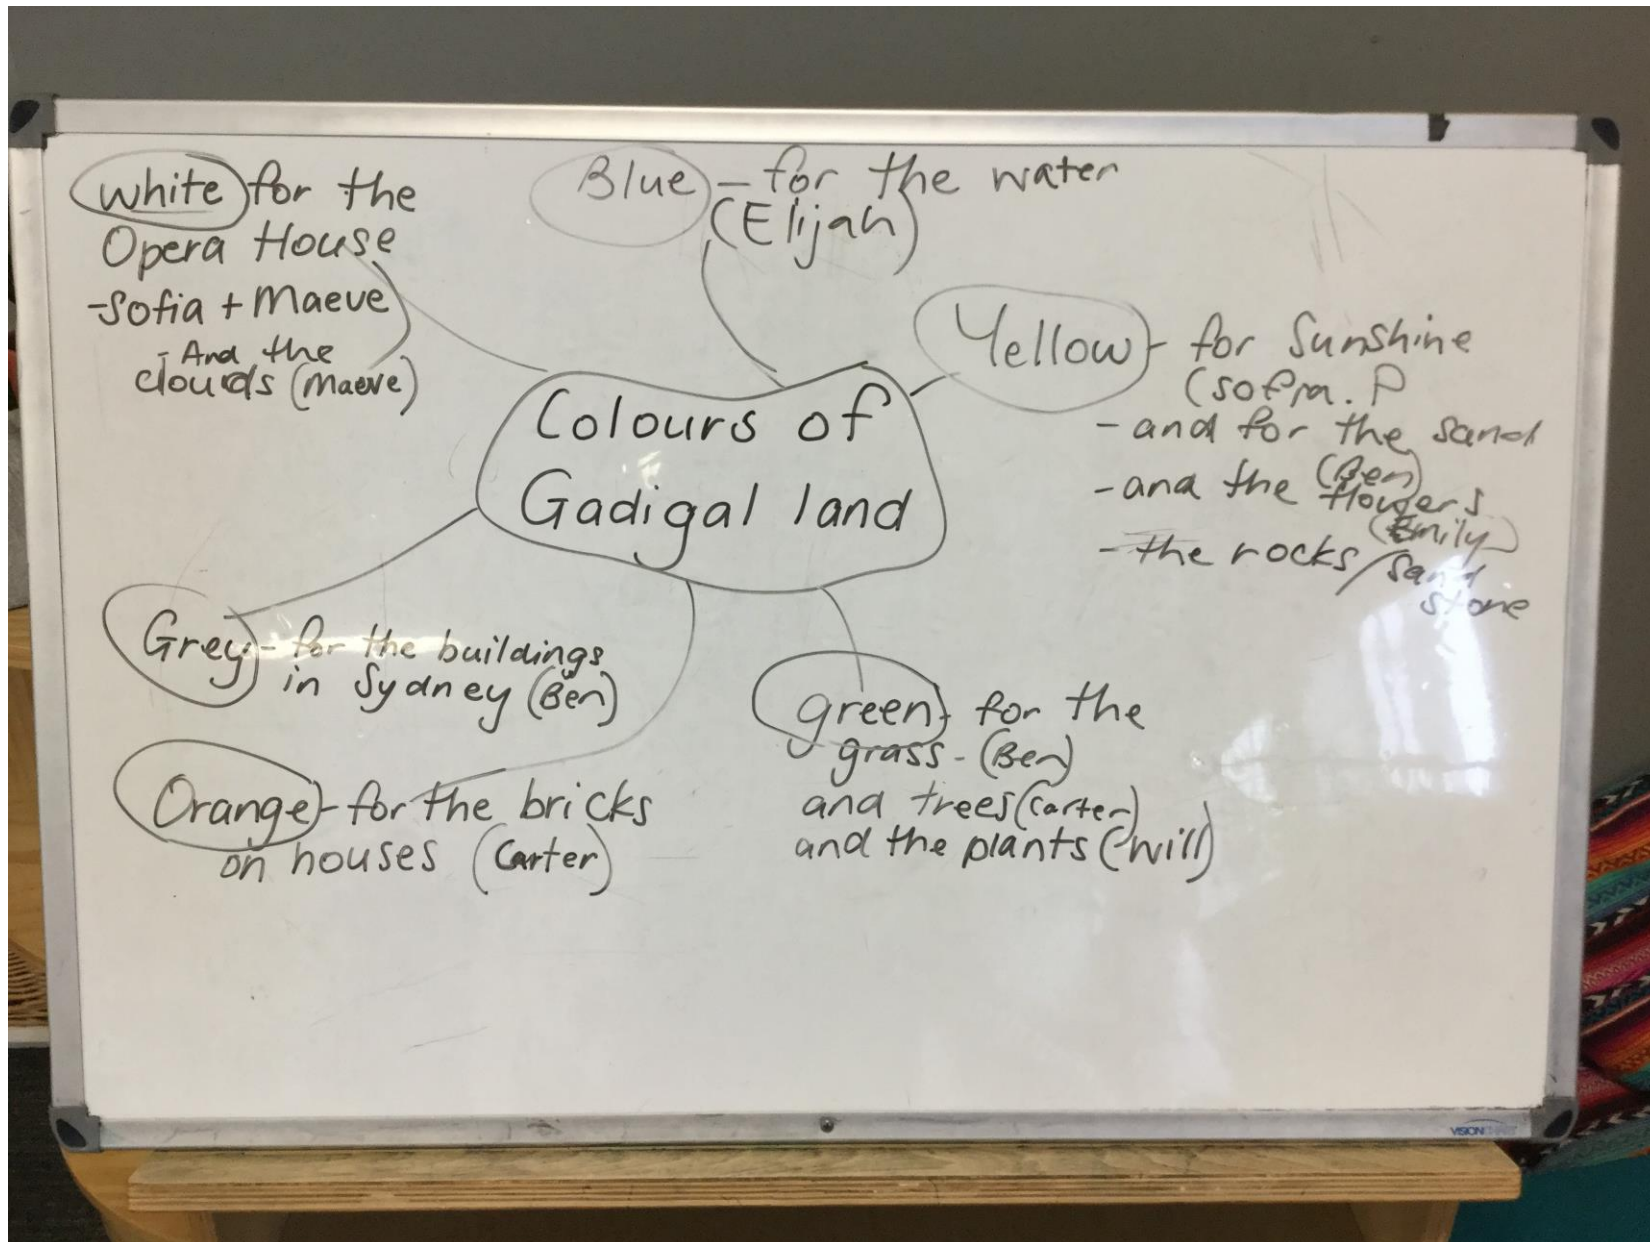 white for the
Opera House
-Sofia + Maeve
- And the
clouds (Maeve)
Blue - for the water
(Elijah)
Yellow - for Sunshine
(Sofia. P
- and for the sand
(Ben)
- and the flowers
(Emily)
- the rocks/sand
stone
Colours of
Gadigal land
Grey - for the buildings
in Sydney (Ben)
Orange - for the bricks
on houses (Carter)
green - for the
grass - (Ben)
and trees (Carter)
and the plants (Will)
VISION